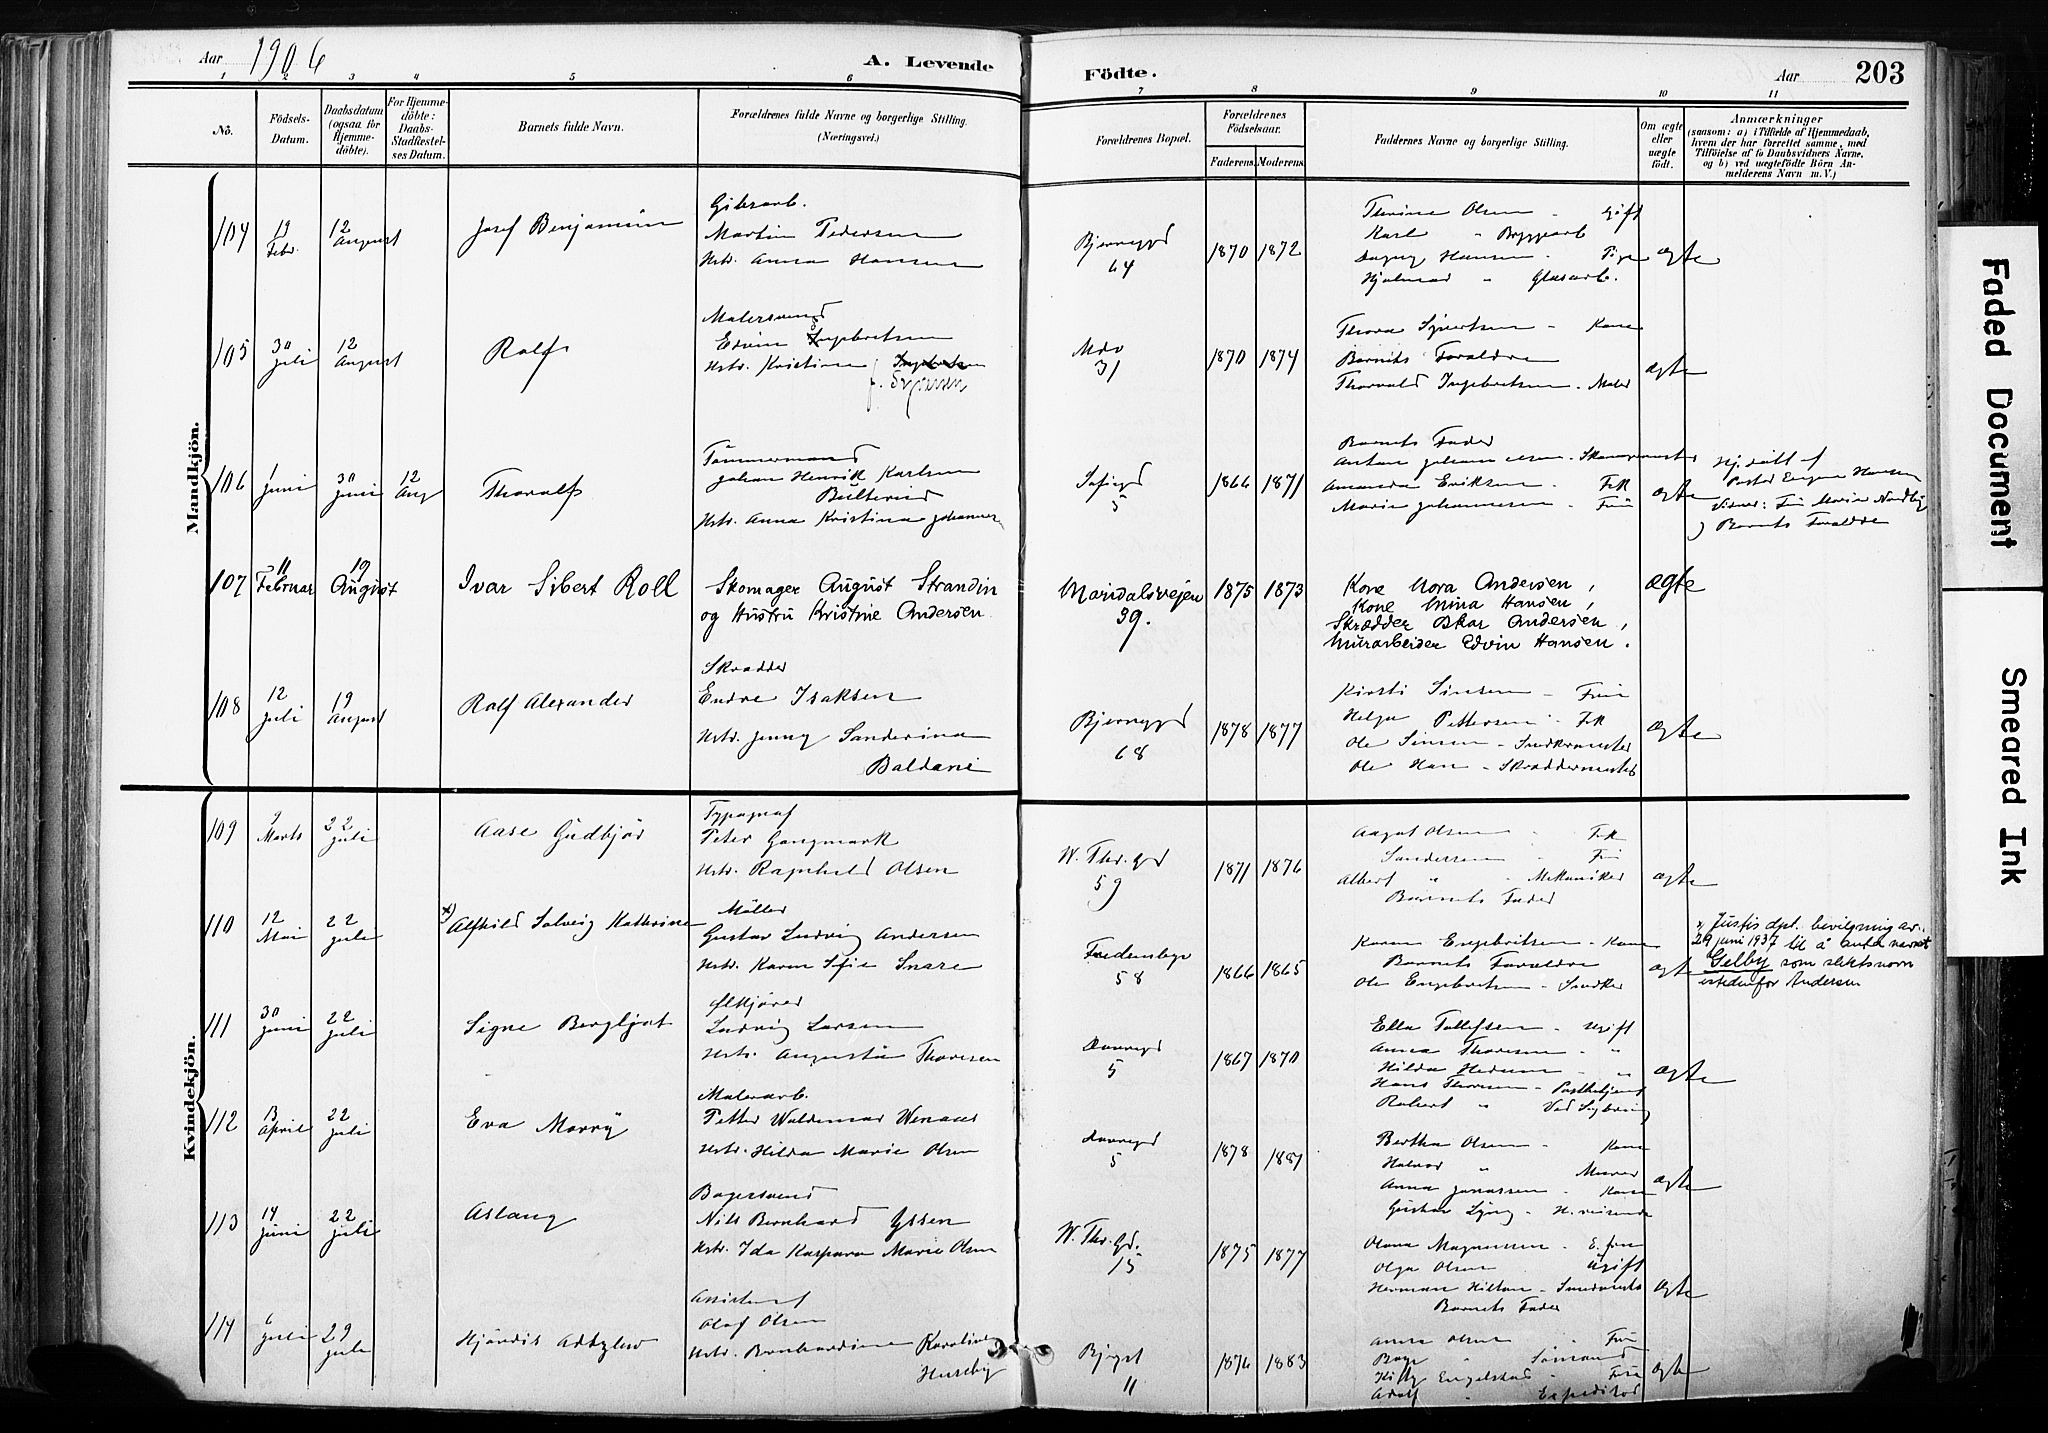 Aar 1906
A. Levende
Födte.
Aar
203
1 2 3 4 5 6 7 8 9 10 11
No.
Födsels-
Datum.
Daabsdatum
(ogsaa for
Hjemme-
döbte).
For Hjemme-
döbte:
Daabs-
Stadfæstel-
ses Datum.
Barnets fulde Navn.
Forældrenes fulde Navne og borgerlige Stilling.
(Næringsvei.)
Forældrenes Bopæl.
Forældrenes
Födselsaar.
Faderens. Moderens.
Faddernes Navne og borgerlige Stilling.
Om ægte
eller
uægte
födt.
Anmærkninger
(saasom: a) i Tilfælde af Hjemmedaab,
hvem der har forrettet samme, med
Tilföielse af to Daabsvidners Navne,
og b) ved uægtefödte Börn An-
melderens Navn m. V.)
Mandkjön.
104
19
Febr.
12
August
Josef Benjamin
Gibsarb.
Martin Pedersen
Hstr. Anna Hansen
64
1870 1872
Olsen
Karl " Byggarb
Dagny Hansen - Pige
Hjalmar " Glasarb.
ægte
105
30
juli
12
August
Rolf
Malersvend
Edvin Ingebretsen
Hstr. Kristine
31
1870 1874
Thora Syvertsen - Kone
Barnets Forældre
Thorvald Ingebretsen - Maler
ægte
106
1
juni
30
juni
12
Aug
Thoralf
Tömmermand
Johan Henrik Karlsen
Hstr. Anna Kristina Johannes
Sofiegd
5
1866 1871
Barnets Fader
Amanda Eriksen - Frk
Marie Johannesen - Frü
ægte
Hj. döbt af
Pastor Eugen Hansen
Marie Nordby
Barnets Forældre
107
11
Februar
19
August
Ivar Sibert Roll
Skomager August Strandin
og Hustru Kristine Andersen
Maridalsvejen
39.
1875 1873
Kone Nora Andersen,
Kone Mina Hansen,
Skrædder Oskar Andersen,
Murarbeider Edvin Hansen.
ægte
108
12
juli
19
August
Rolf Alexander
Skrædder
Endre Isaksen
Hstr. Jenny Sanderina
Baldani
68
1878 1877
Kirsti Sinsen - Frü
Helga Pettersen - Frk
Ole Sinsen - Snedkermester
Ole Han - Skræddermester
ægte
Kvindekjön.
109
9
Marts
22
juli
Aase Gudbjör
Typograf
Peter Gangmark
Hstr. Ragnhild Olsen
W. Thr. gd
59
1871 1876
August Olsen Frk
Sandersen " Frü
Albert " Mekaniker
Barnets Fader
ægte
110
12
Mai
22
juli
x) Alfhild Solveig Kathrine
Möller
Gustav Ludvig Andersen
Hstr. Karen Sofie Snare
58
1866 1865
Karen Engebretsen - Kone
Barnets Forældre
Ole Engebretsen - Snedker
ægte
x) Justis dpt. bevilgning av
29 juni 1937 til å anta navnet
Gelby som slektsnavn
istedenfor Andersen
111
30
juni
22
juli
Signe Bergljot
Ølkjörer
Ludvig Larsen
Hstr. Augusta Thoresen
5
1867 1870
Ella Tollefsen - Ugift
Anna Thoresen - "
Hilda Hedum - "
Hans Thoresen - Postbetjent
Robert "
ægte
112
13
April
22
juli
Eva Marry
Malerarb.
Petter Waldemar
Hstr. Hilda Marie Olsen
5
1878 1881
Bertha Olsen - Kone
Halvor " Murer
Anna Jonassen - Kone
Gustav Lyng - H. reisende
ægte
113
14
juni
22
juli
Aslaug
Bagersvend
Nils Bernhard Yssen
Hstr. Ida Kaspara Marie Olsen
W. Thr. Gd.
15
1875 1877
Olava Magnussen - E. frue
Olga Olsen Ugift
Herman Hilton
Barnets Fader
ægte
114
6
juli
29
juli
Hjördis
Assistent
Olaf Olsen
Hstr. Bernhardine Karoline
Huseby
11
1876 1883
Anna Olsen " Frü
" Sömand
Kitty Engelstad - Frü
Adolf " Expeditör
ægte
Faded Document
Smeared Ink